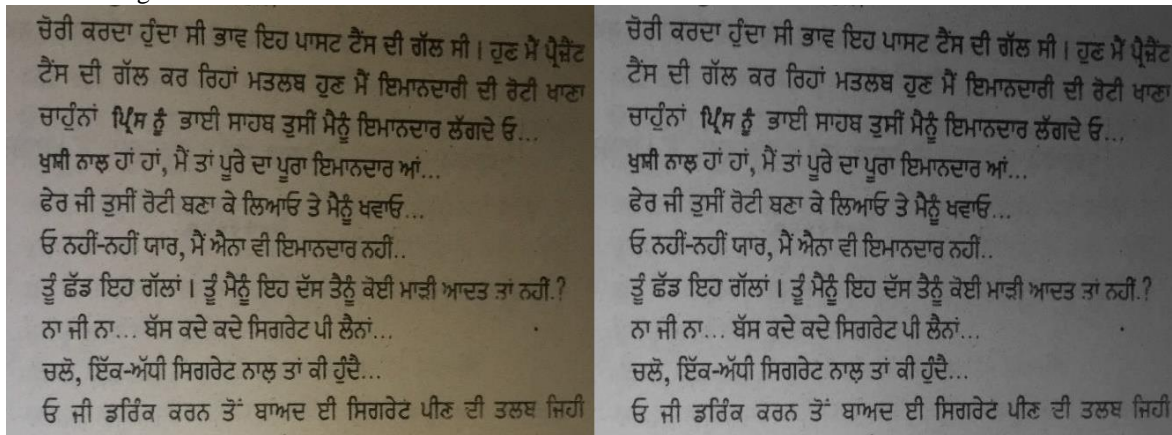 ਚੋਰੀ ਕਰਦਾ ਹੁੰਦਾ ਸੀ ਭਾਵ ਇਹ ਪਾਸਟ ਟੈਂਸ ਦੀ ਗੱਲ ਸੀ। ਹੁਣ ਮੈਂ ਪ੍ਰੈਜ਼ੈਂਟ
ਟੈਂਸ ਦੀ ਗੱਲ ਕਰ ਰਿਹਾਂ ਮਤਲਬ ਹੁਣ ਮੈਂ ਇਮਾਨਦਾਰੀ ਦੀ ਰੋਟੀ ਖਾਣਾ
ਚਾਹੁੰਨਾਂ ਪ੍ਰਿੰਸ ਨੂੰ ਭਾਈ ਸਾਹਬ ਤੁਸੀਂ ਮੈਨੂੰ ਇਮਾਨਦਾਰ ਲੱਗਦੇ ਓ...
ਖੁਸ਼ੀ ਨਾਲ਼ ਹਾਂ ਹਾਂ, ਮੈਂ ਤਾਂ ਪੂਰੇ ਦਾ ਪੂਰਾ ਇਮਾਨਦਾਰ ਆਂ...
ਫੇਰ ਜੀ ਤੁਸੀਂ ਰੋਟੀ ਬਣਾ ਕੇ ਲਿਆਓ ਤੇ ਮੈਨੂੰ ਖਵਾਓ...
ਓ ਨਹੀਂ-ਨਹੀਂ ਯਾਰ, ਮੈਂ ਐਨਾ ਵੀ ਇਮਾਨਦਾਰ ਨਹੀਂ..
ਤੂੰ ਛੱਡ ਇਹ ਗੱਲਾਂ। ਤੂੰ ਮੈਨੂੰ ਇਹ ਦੱਸ ਤੈਨੂੰ ਕੋਈ ਮਾੜੀ ਆਦਤ ਤਾਂ ਨਹੀਂ.?
ਨਾ ਜੀ ਨਾ... ਬੱਸ ਕਦੇ ਕਦੇ ਸਿਗਰੇਟ ਪੀ ਲੈਨਾਂ...
ਚਲੋ, ਇੱਕ-ਅੱਧੀ ਸਿਗਰੇਟ ਨਾਲ਼ ਤਾਂ ਕੀ ਹੁੰਦੈ...
ਓ ਜੀ ਡਰਿੰਕ ਕਰਨ ਤੋਂ ਬਾਅਦ ਈ ਸਿਗਰੇਟ ਪੀਣ ਦੀ ਤਲਬ ਜਿਹੀ
ਚੋਰੀ ਕਰਦਾ ਹੁੰਦਾ ਸੀ ਭਾਵ ਇਹ ਪਾਸਟ ਟੈਂਸ ਦੀ ਗੱਲ ਸੀ। ਹੁਣ ਮੈਂ ਪ੍ਰੈਜ਼ੈਂਟ
ਟੈਂਸ ਦੀ ਗੱਲ ਕਰ ਰਿਹਾਂ ਮਤਲਬ ਹੁਣ ਮੈਂ ਇਮਾਨਦਾਰੀ ਦੀ ਰੋਟੀ ਖਾਣਾ
ਚਾਹੁੰਨਾਂ ਪ੍ਰਿੰਸ ਨੂੰ ਭਾਈ ਸਾਹਬ ਤੁਸੀਂ ਮੈਨੂੰ ਇਮਾਨਦਾਰ ਲੱਗਦੇ ਓ...
ਖੁਸ਼ੀ ਨਾਲ਼ ਹਾਂ ਹਾਂ, ਮੈਂ ਤਾਂ ਪੂਰੇ ਦਾ ਪੂਰਾ ਇਮਾਨਦਾਰ ਆਂ...
ਫੇਰ ਜੀ ਤੁਸੀਂ ਰੋਟੀ ਬਣਾ ਕੇ ਲਿਆਓ ਤੇ ਮੈਨੂੰ ਖਵਾਓ...
ਓ ਨਹੀਂ-ਨਹੀਂ ਯਾਰ, ਮੈਂ ਐਨਾ ਵੀ ਇਮਾਨਦਾਰ ਨਹੀਂ..
ਤੂੰ ਛੱਡ ਇਹ ਗੱਲਾਂ। ਤੂੰ ਮੈਨੂੰ ਇਹ ਦੱਸ ਤੈਨੂੰ ਕੋਈ ਮਾੜੀ ਆਦਤ ਤਾਂ ਨਹੀਂ.?
ਨਾ ਜੀ ਨਾ... ਬੱਸ ਕਦੇ ਕਦੇ ਸਿਗਰੇਟ ਪੀ ਲੈਨਾਂ...
ਚਲੋ, ਇੱਕ-ਅੱਧੀ ਸਿਗਰੇਟ ਨਾਲ਼ ਤਾਂ ਕੀ ਹੁੰਦੈ...
ਓ ਜੀ ਡਰਿੰਕ ਕਰਨ ਤੋਂ ਬਾਅਦ ਈ ਸਿਗਰੇਟ ਪੀਣ ਦੀ ਤਲਬ ਜਿਹੀ